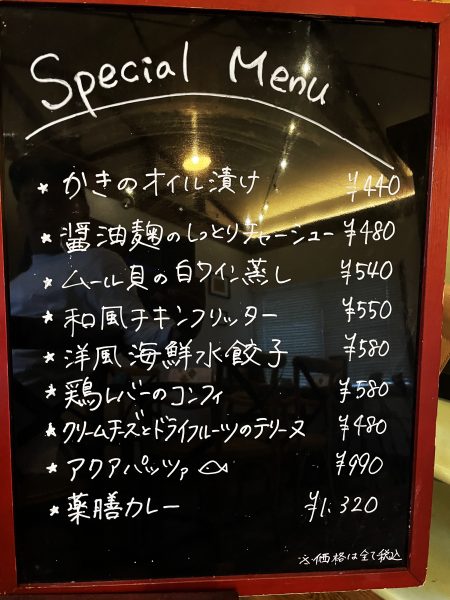 Special Menu
★ かきのオイル漬け ¥440
★ 醤油麹のしっとりチャーシュー ¥480
★ ムール貝の白ワイン蒸し ¥540
★ 和風チキンフリッター ¥550
★ 洋風海鮮水餃子 ¥580
★ 鶏レバーのコンフィ ¥580
★ クリームチーズとドライフルーツのテリーヌ ¥480
★ アクアパッツァ ¥990
★ 薬膳カレー ¥1.320
※価格は全て税込